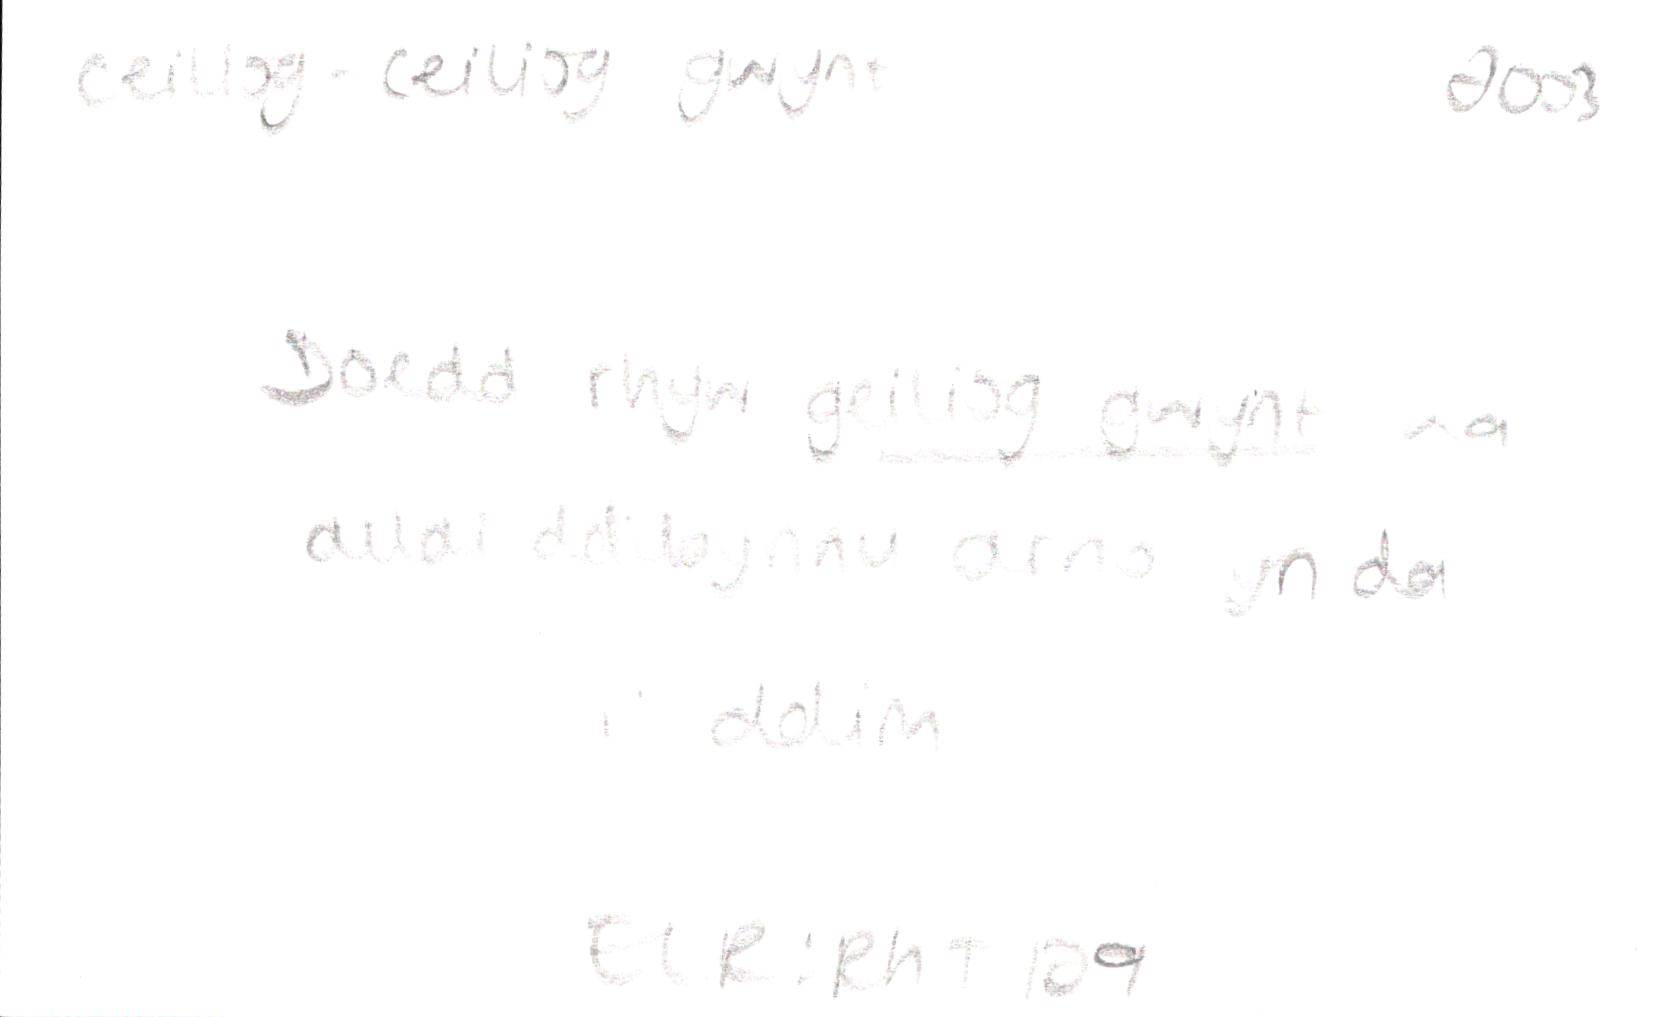 ceiliog - ceiliog gwynt 2003
Doedd rhyw geiliog gwynt na
allai ddibynnu arno yn da
i ddim
ELR: RhT 129